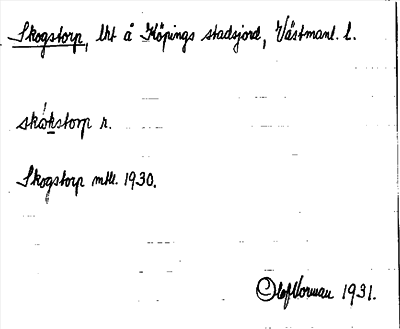 Skogstorp, lht å Köpings stadsjord, Västmanl. l.
skókstorp r.
Skogstorp mtll. 1930.
Olof Norman 1931.